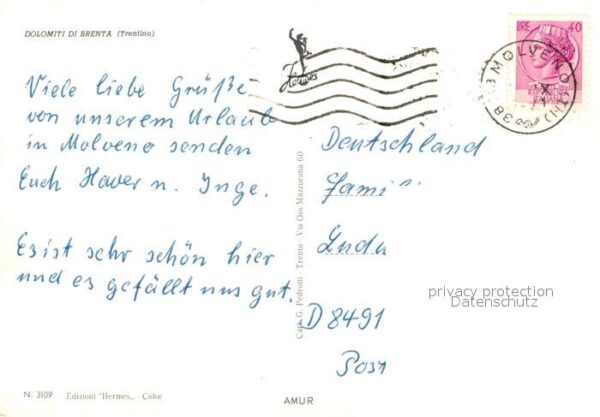 DOLOMITI DI BRENTA (Trentino)
Viele liebe Grüße
von unserem Urlaub
in Molveno senden
Euch Haver u. Inge.
Es ist sehr schön hier
und es gefällt uns gut.
N. 3109 Edizioni "Hermes„ - Color
Cart. G. Pedrotti - Trento - Via Oss Mazzurana 60
AMUR
Hermes
LIRE 40
MOLVENO (TN)
38
Deutschland
Fami
D 8491
Post
privacy protection
Datenschutz